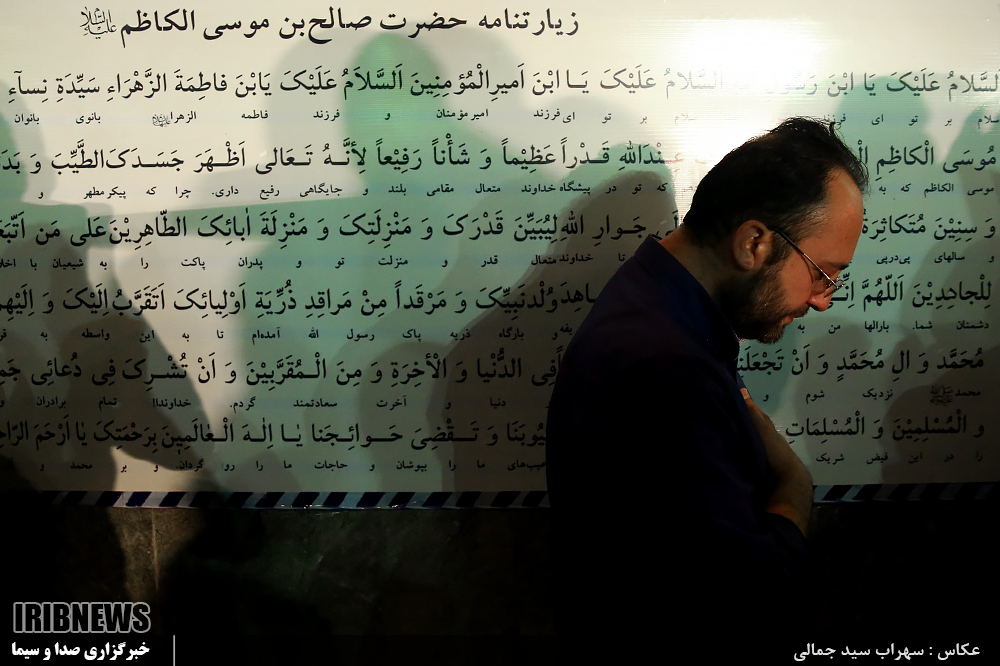 زیارتنامه حضرت صالح‌بن موسی الکاظم علیه‌السلام
اَلسَّلامُ عَلَیْکَ یَا ابْنَ رَسُولِ اَلسَّلامُ عَلَیْکَ یَـا ابْنَ اَمیرِالْمُؤمِنِینَ اَلسَّلاَمُ عَلَیْکَ یَابْنَ فاطِمَةَ الزَّهْراءِ سَیِّدَةِ نِسآءِ
سلام بر تو ای فرزند سلام بر تو ای فرزند امیرمؤمنان و فرزند فاطمه الزهرا بانوی بانوان
مُوسَی الْکاظِمِ عِنْدَاللهِ قَـدْراً عَظِیْماً وَ شَأْناً رَفِیْعاً لِأَنَّـهُ تَـعَالی اَظْـهَرَ جَسَـدَکَ الطَّیِّبَ وَ بَدَ
موسی الکاظم که به که تو در پیشگاه خداوند متعال مقامی بلند و جایگاهی رفیع داری. چرا که پیکر مطهر و
وَ سِنِیْنَ مُتَکاثِرَةً جَـوارِ اللهِ لِیُبَیِّنَ قَدْرَکَ وَ مَنْزِلَتِکَ وَ مَنْزِلَةَ أبائِکَ الطّاهِرِیْنَ عَلی مَن اَتَّبَعَ
و سالهای پی‌درپی تا خداوند متعال قدر و منزلت تو و پدران پاکت را به شیعیان با اخلا
لِلْجاحِدِیْنَ اَللّهُمَّ وُلْدِنَبِیِّکَ وَ مَرْقَداً مِنْ مَراقِدِ ذُرِّیَةِ اَوْلِیائِکَ اَتَقَرَّبُ اِلَیْکَ وَ اِلَیْهِ
دشمنان شما. بارالها من به و بارگاه ذریه پاک رسول الله آمده‌ام تا به این واسطه به
مُحَمَّد وَ الِ مُحَمَّدٍ وَ اَنْ تَجْعَلَنِ فِی الدُّنْیا وَ الْأخِرَةِ وَ مِنَ الْـمُقَرَّبِیْنَ وَ اَنْ تُشْـرِکَ فِی دُعائِی
محمد نزدیک شوم و دنیا و آخرت سعادتمند گردم. خداوندا! تمام برادران و
وَ الْمُسْلِمِیْنَ وَ الْمُسْلِماتِ عُیُوبَنا وَ تَـقْضِیَ حَـوائِـجَنا یـا اِلـهَ الْـعالَمِینَ بِرَحْمَتِکَ یا اَرْحَمَ
را در این فیض شریک عیب‌های ما را بپوشان و حاجات ما را رو گردان. و بر محمد و
IRIBNEWS
خبرگزاری صدا و سیما
عکاس : سهراب سید جمالی